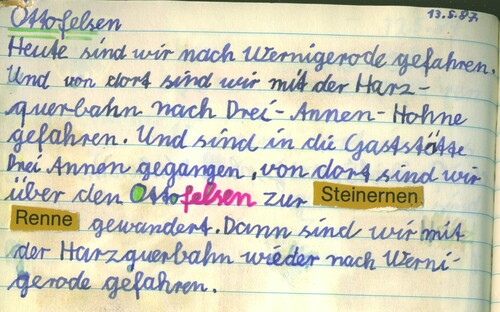 Ottofelsen 13.5.87.
Heute sind wir nach Wernigerode gefahren.
Und von dort sind wir mit der Harz-
querbahn nach Drei-Annen-Hohne
gefahren. Und sind in die Gaststötte
Drei Annen gegangen, von dort sind wir
über den Ottofelsen zur Steinernen
Renne gewandert. Dann sind wir mit
der Harzquerbahn wieder nach Werni-
gerode gefahren.